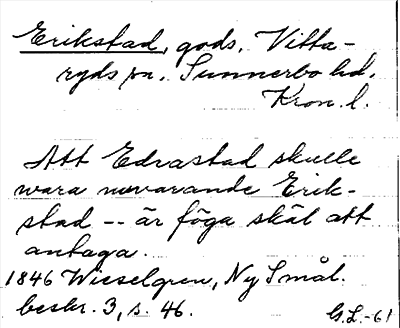 Erikstad, gods, Vitta-
ryds sn. Sunnerbo hd.
Kron. l.
Att Edrastad skulle
wara nuvarande Erik-
stad -- är föga skäl att
antaga.
1846 Wieselgren, Ny Smål.
beskr. 3, s. 46.
G.L.-61